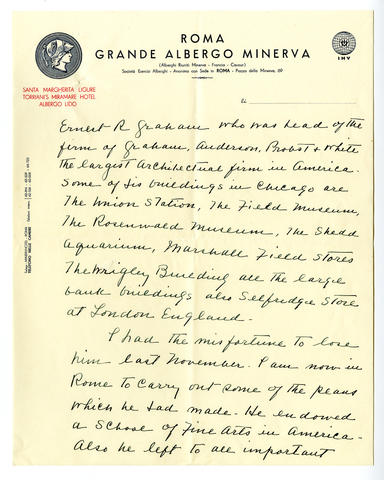 ROMA
GRANDE ALBERGO MINERVA
(Alberghi Riuniti Minerva - Francia - Cavour)
Società Esercizi Alberghi - Anonima con Sede in ROMA - Piazza della Minerva, 69
INV
SANTA MARGHERITA LIGURE
TORRIANI'S MIRAMARE HOTEL
ALBERGO LIDO
li
TELEFONO NELLE CAMERE
Ernest R Graham who was head of the
firm of Graham, Anderson, Probst & White
the largest Architectual firm in America.
Some of his buildings in Chicago are
The Union Station, The Field Museum,
The Rosenwald Museum, The Shedd
Aquarium, Marshall Field Stores
The Wrigley Building all the large
bank buildings also Selfridge Store
at London England.
I had the misfortune to lose
him last November. I am now in
Rome to carry out some of the plans
which he had made. He endowed
a School of Fine Arts in America.
Also he left to all important